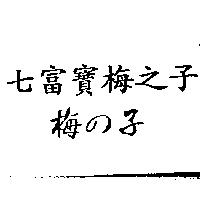 七富寶梅之子
梅の子